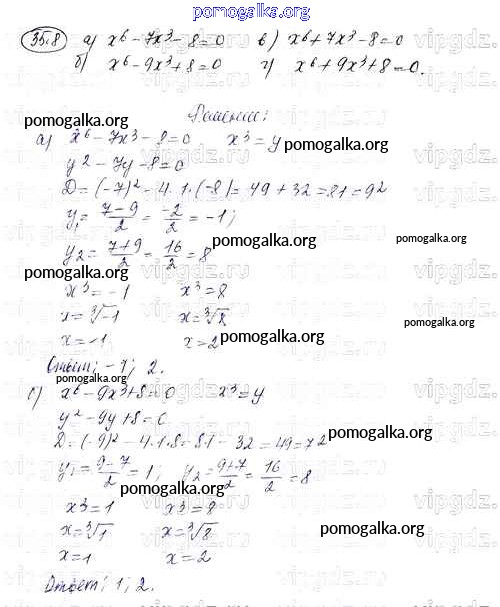 pomogalka.org
35.8 а) x⁶ - 7x³ - 8 = 0 в) x⁶ + 7x³ - 8 = 0
б) x⁶ - 9x³ + 8 = 0 г) x⁶ + 9x³ + 8 = 0.
Решение:
pomogalka.org
а) x⁶ - 7x³ - 8 = 0 x³ = y
pomogalka.org
y² - 7y - 8 = 0
D = (-7)² - 4·1·(-8) = 49 + 32 = 81 = 9²
y₁ = (7-9)/2 = -2/2 = -1;
pomogalka.org pomogalka.org
y₂ = (7+9)/2 = 16/2 = 8
pomogalka.org
x³ = -1 x³ = 8
x = ∛-1 x = ∛8
pomogalka.org
x = -1 x = 2
pomogalka.org
Ответ: -1; 2.
pomogalka.org
б) x⁶ - 9x³ + 8 = 0 x³ = y
y² - 9y + 8 = 0
pomogalka.org
D = (-9)² - 4·1·8 = 81 - 32 = 49 = 7²
y₁ = (9-7)/2 = 1; y₂ = (9+7)/2 = 16/2 = 8
pomogalka.org
x³ = 1 x³ = 8
pomogalka.org
x = ∛1 x = ∛8
x = 1 x = 2
Ответ: 1; 2.